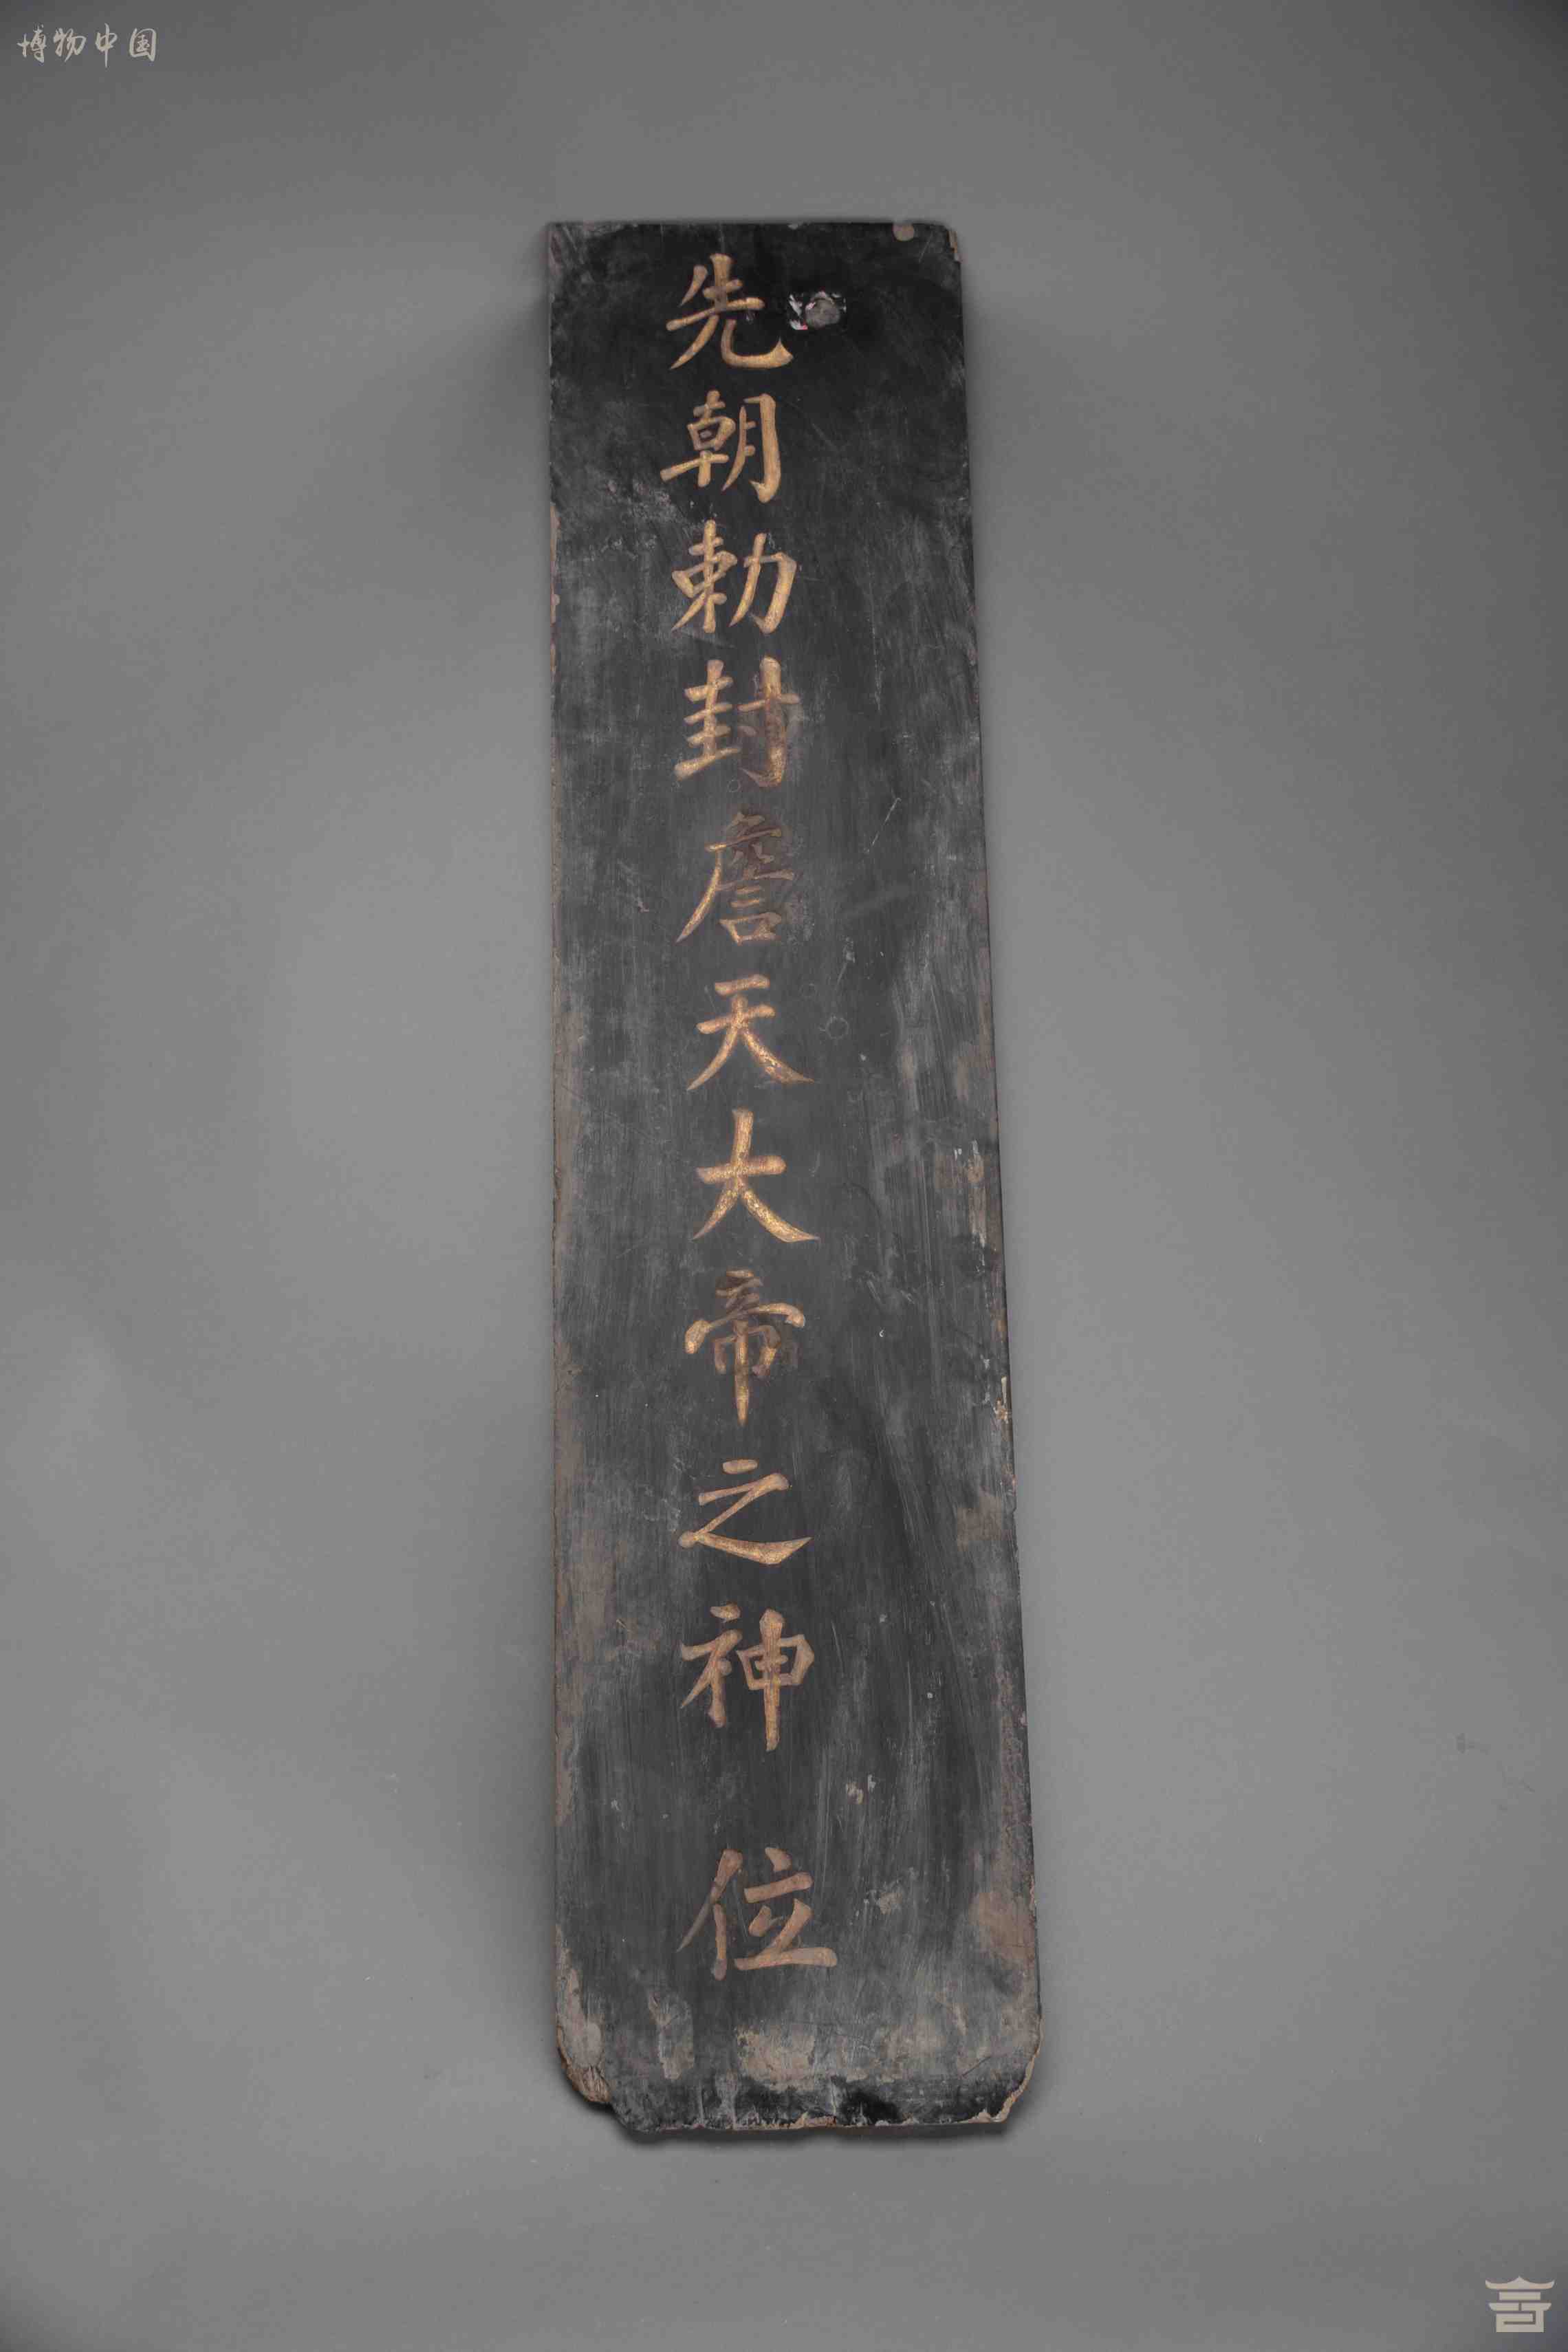 博物中国
先朝勅封詹天大帝之神位